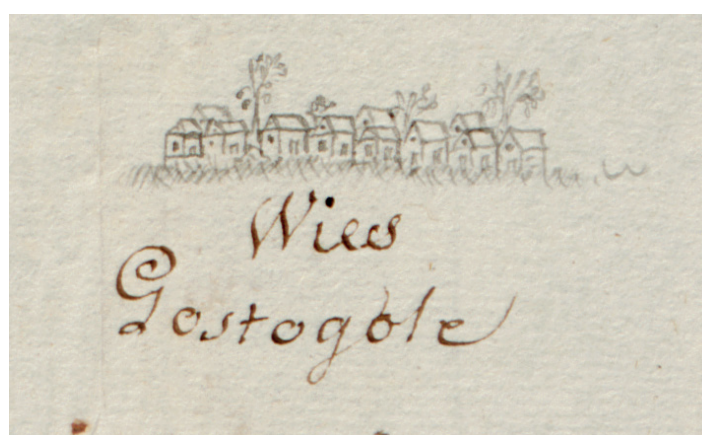 Wies
Gostogole